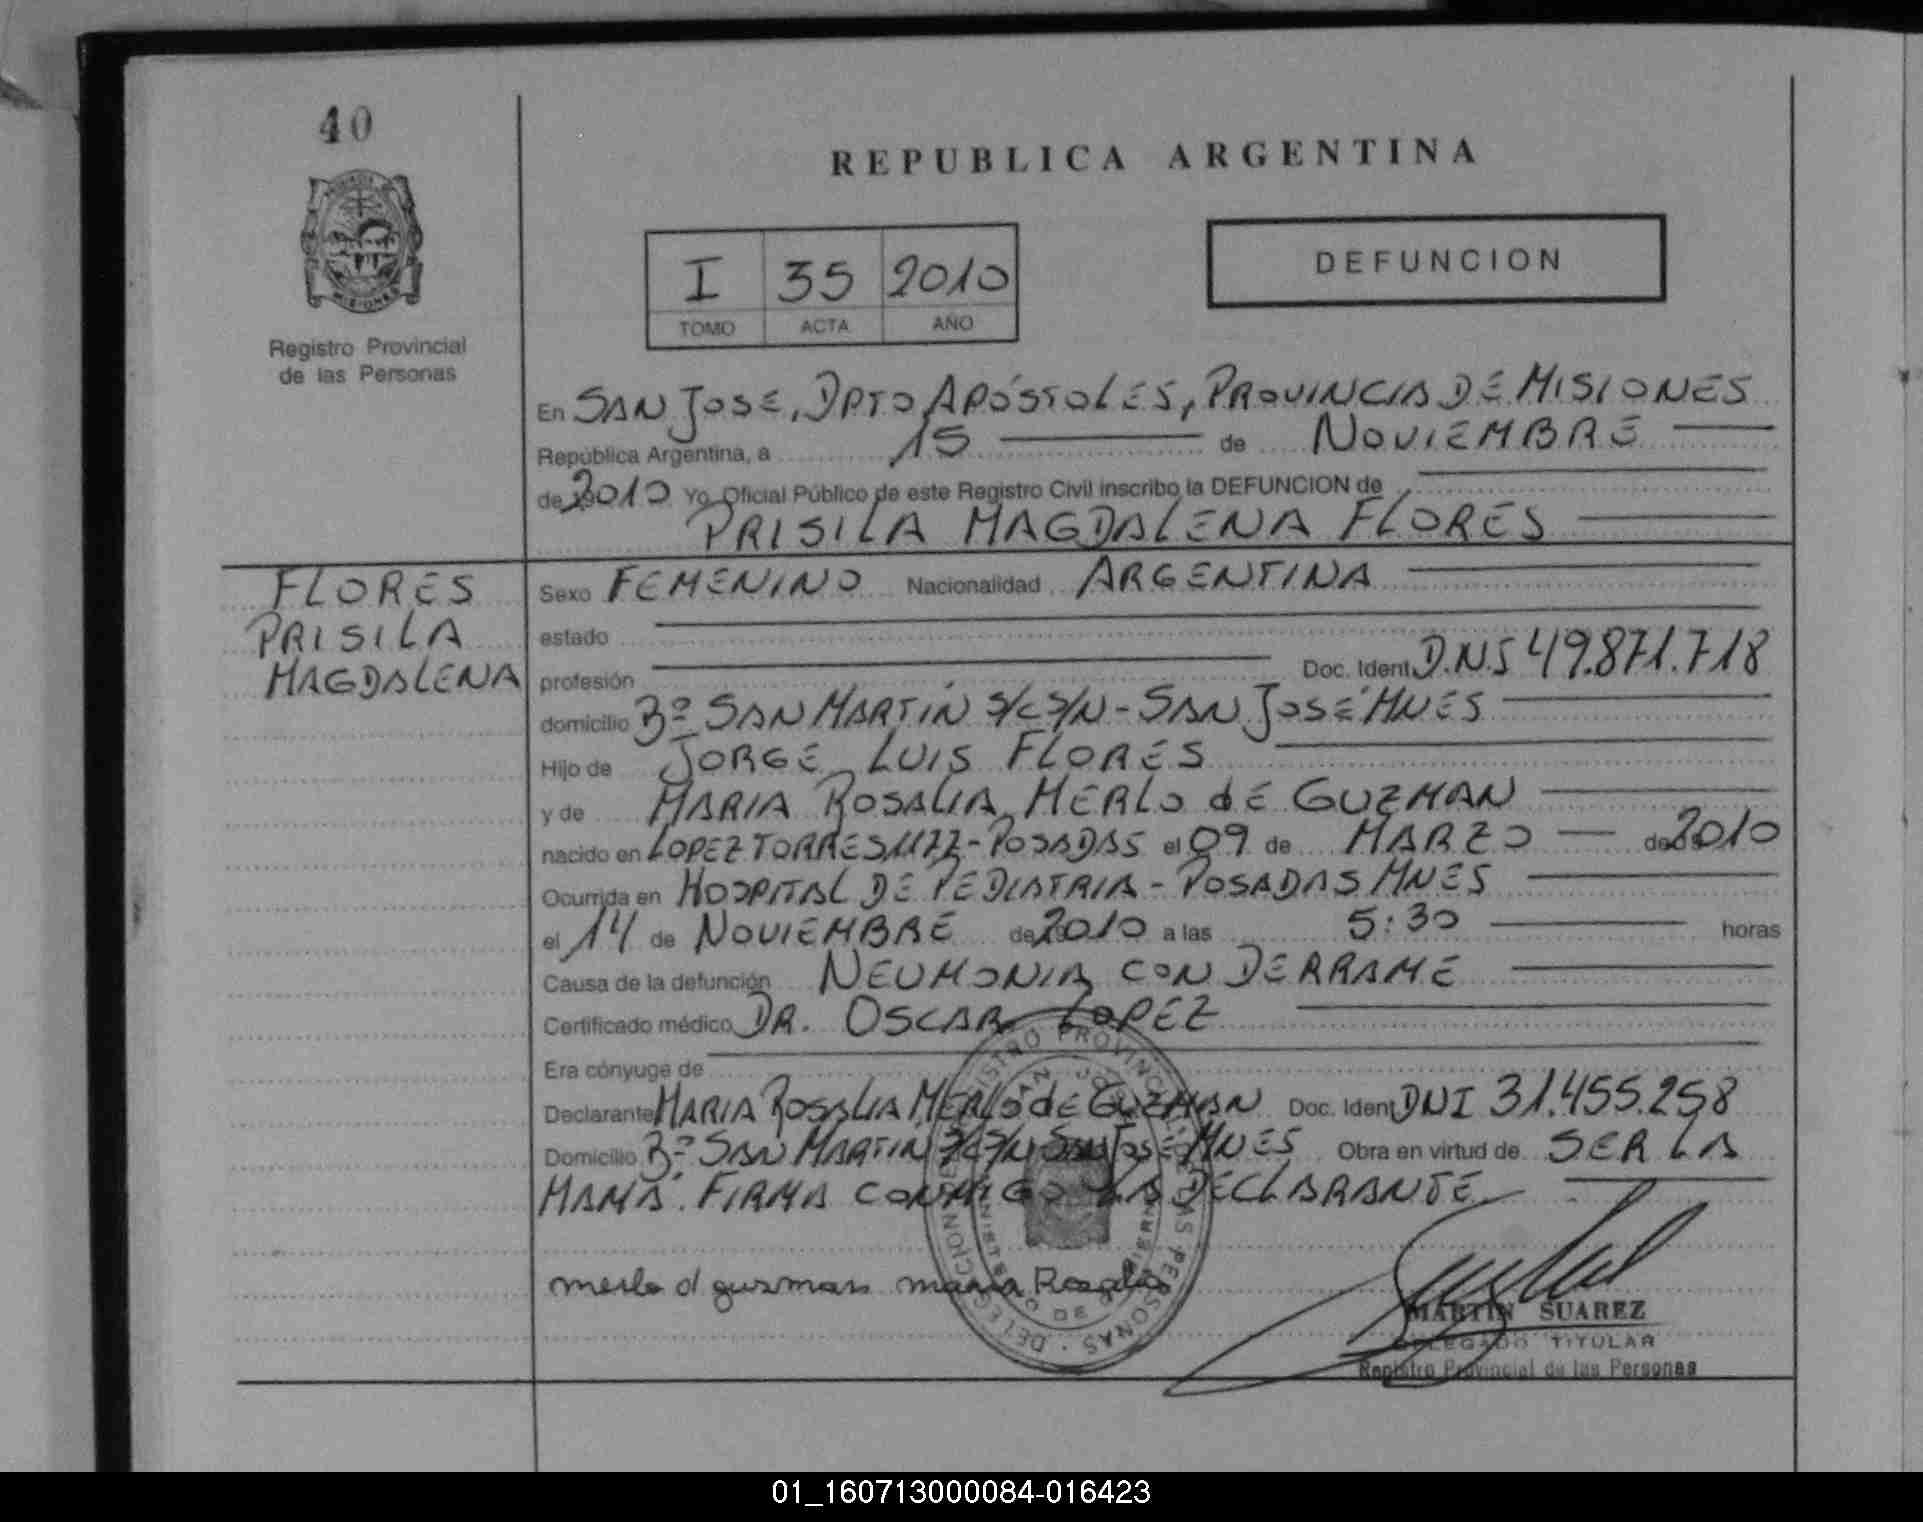 40
REPUBLICA ARGENTINA
MISIONES
Registro Provincial
de las Personas
I 35 2010
TOMO ACTA AÑO
DEFUNCION
En SAN JOSE, DPTO APÓSTOLES, PROVINCIA DE MISIONES
República Argentina, a 15 de NOVIEMBRE
de 2010 Yo, Oficial Público de este Registro Civil inscribo la DEFUNCION de
PRISILA MAGDALENA FLORES
FLORES
PRISILA
MAGDALENA
Sexo FEMENINO Nacionalidad ARGENTINA
estado
profesión Doc. Ident. D.N.I 49.871.718
domicilio Bº SAN MARTIN S/C S/N - SAN JOSÉ MNES
Hijo de JORGE LUIS FLORES
y de MARIA ROSALIA MERLO dE GUZMAN
nacido en LOPEZ TORRES 1177 - POSADAS el 09 de MARZO de 2010
Ocurrida en HOSPITAL DE PEDIATRIA - POSADAS MNES
el 14 de NOVIEMBRE de 2010 a las 5:30 horas
Causa de la defunción NEUMONIA CON DERRAME
Certificado médico DR. OSCAR LOPEZ
Era cónyuge de
Declarante MARIA ROSALIA MERLO dE GUZMAN Doc. Ident. DNI 31.455.258
Domicilio Bº SAN MARTIN S/C S/N SAN JOSE MNES Obra en virtud de SER LA
MAMÁ. FIRMA CONMIGO LA DECLARANTE
merlo d guzman maria Rosalia
MARTIN SUAREZ
DELEGADO TITULAR
Registro Provincial de las Personas
01_160713000084-016423